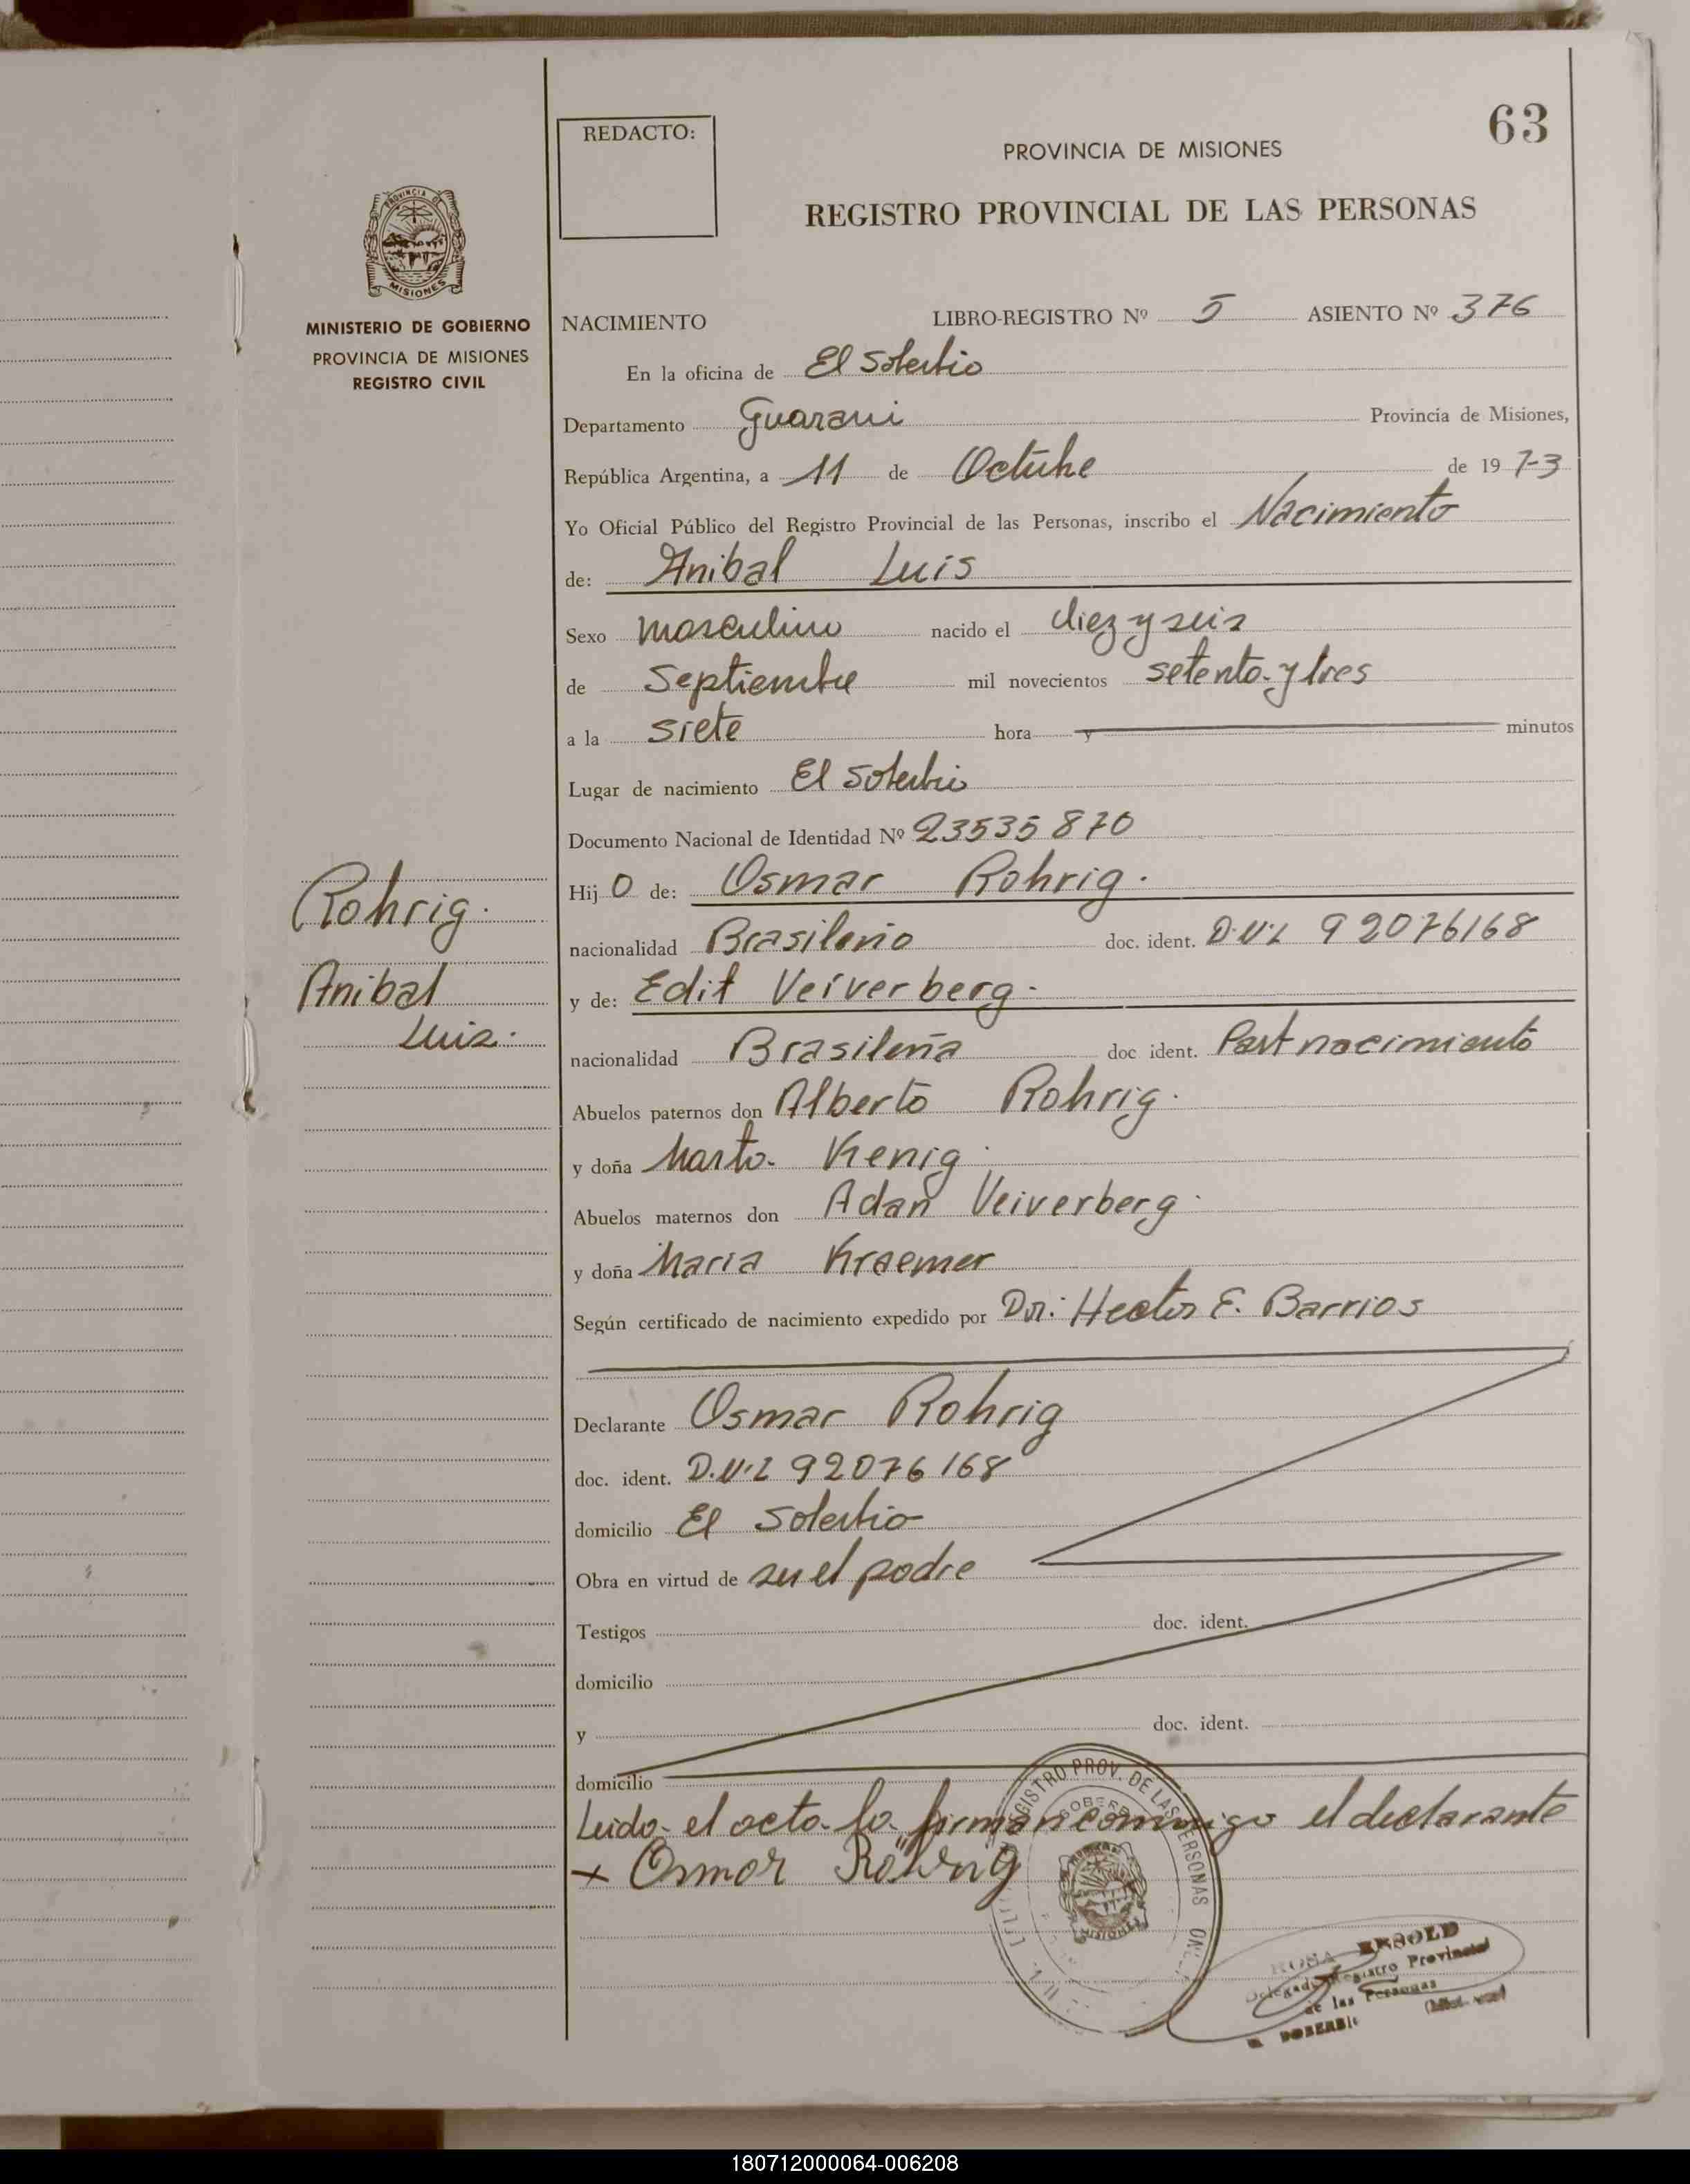 63
REDACTO:
PROVINCIA DE MISIONES
REGISTRO PROVINCIAL DE LAS PERSONAS
PROVINCIA DE
MISIONES
MINISTERIO DE GOBIERNO
PROVINCIA DE MISIONES
REGISTRO CIVIL
NACIMIENTO LIBRO-REGISTRO Nº 5 ASIENTO Nº 376
En la oficina de El Soberbio
Departamento Guarani Provincia de Misiones,
República Argentina, a 11 de Octubre de 1973
Yo Oficial Público del Registro Provincial de las Personas, inscribo el Nacimiento
de: Anibal Luis
Sexo masculino nacido el diez y seis
de Septiembre mil novecientos setenta y tres
a la siete hora y minutos
Lugar de nacimiento El Soberbio
Documento Nacional de Identidad Nº 23535870
Hijo de: Osmar Rohrig.
nacionalidad Brasileño doc. ident. D.N.I 92076168
y de: Edit Veiverberg.
nacionalidad Brasileña doc ident. Part nacimiento
Abuelos paternos don Alberto Rohrig.
y doña Marta Kenig.
Abuelos maternos don Adan Veiverberg.
y doña Maria Kraemer
Según certificado de nacimiento expedido por Dr: Hector E. Barrios
Rohrig.
Anibal
Luis.
Declarante Osmar Rohrig
doc. ident. D.N.I 92076168
domicilio El Soberbio
Obra en virtud de ser el padre
Testigos doc. ident.
domicilio
y doc. ident.
domicilio
Leida el acta la firman conmigo el declarante
x Osmar Röhrig
REGISTRO PROV. DE LAS PERSONAS
MISIONES
ROSA
Delegado Registro Provincial
de las Personas
180712000064-006208